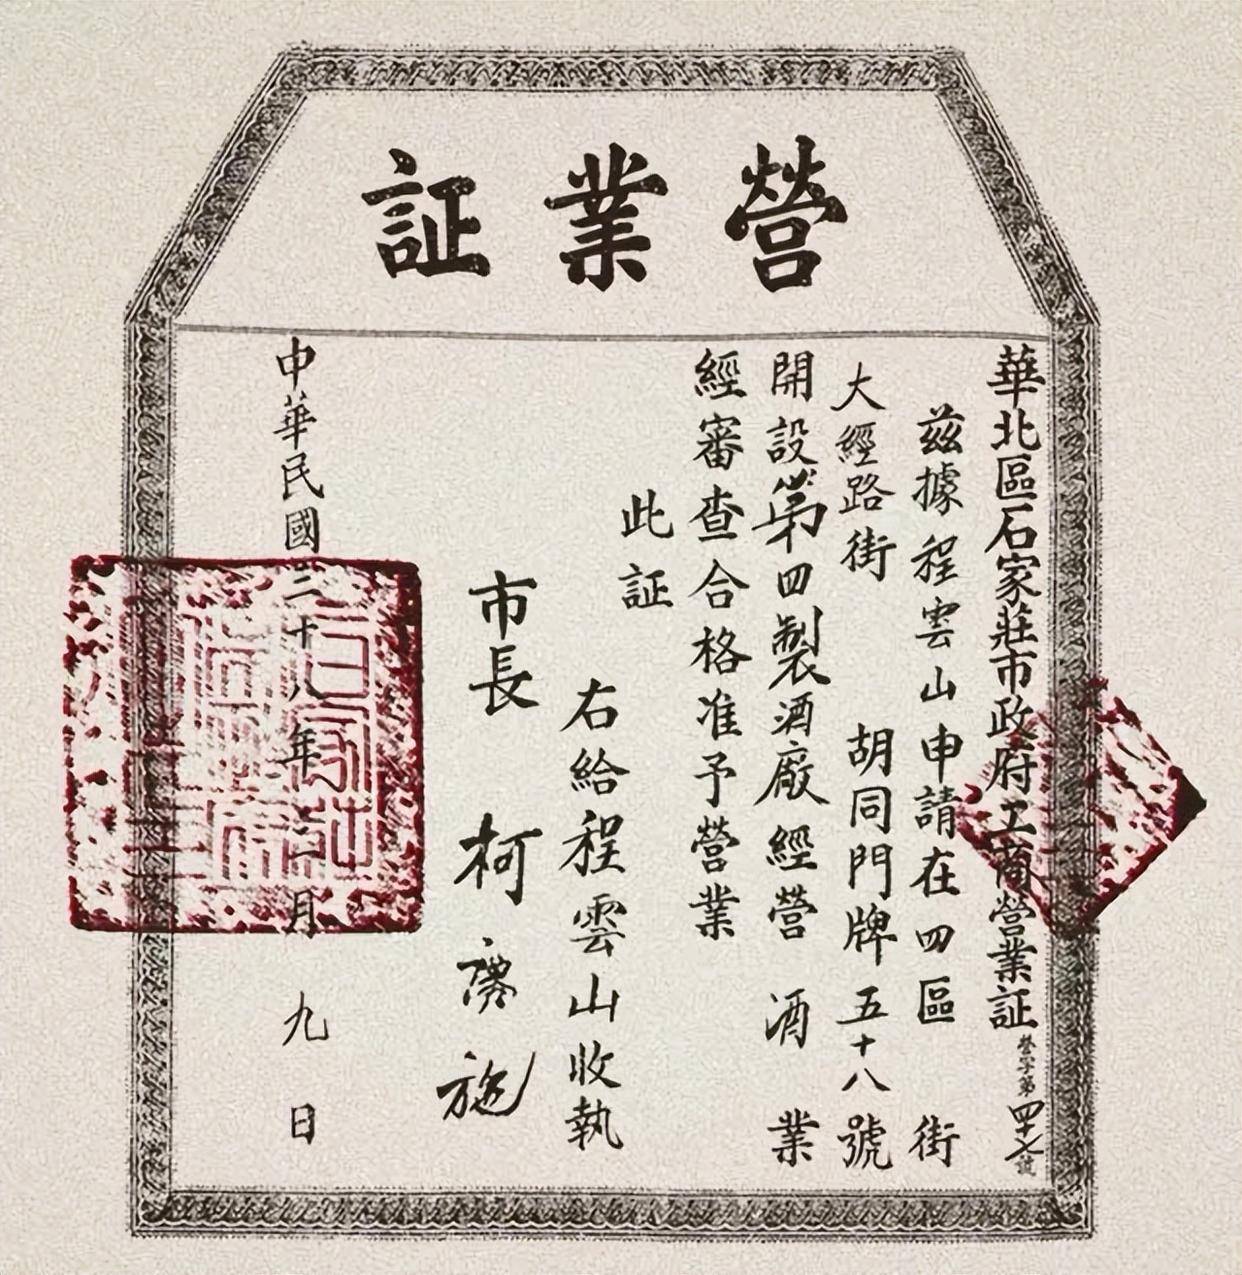 營業証
華北區石家莊市政府工商營業証 營字第四十七號
茲據程雲山申請在四區 街
大經路街 胡同門牌五十八號
開設第四製酒廠經營 酒 業
經審查合格准予營業
此証
右給程雲山收執
市長 柯慶施
中華民國三十八年一月九日